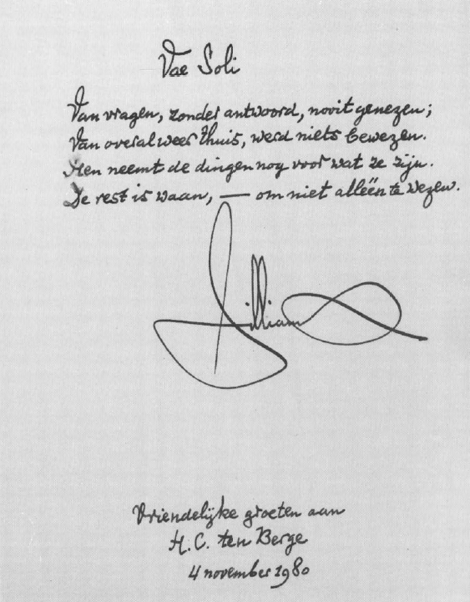 Vae Soli
Van vragen, zonder antwoord, nooit genezen;
Van overal weer thuis, werd niets bewezen.
Men neemt de dingen nog voor wat ze zijn.
De rest is waan, — om niet alléén te wezen.
William
Vriendelijke groeten aan
H.C. ten Berge
4 november 1980